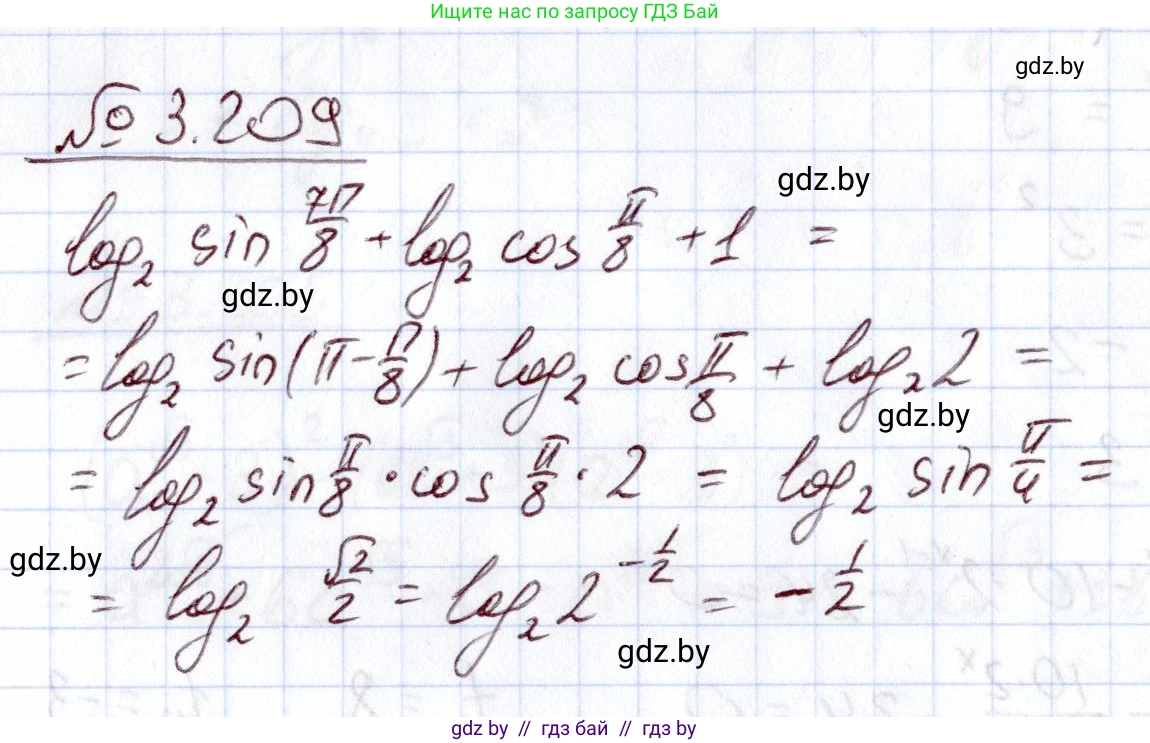 Ищите нас по запросу ГДЗ Бай
gdz.by
№ 3.209
gdz.by
log₂ sin 7π/8 + log₂ cos π/8 + 1 =
gdz.by
= log₂ sin(π - π/8) + log₂ cos π/8 + log₂ 2 =
gdz.by
= log₂ sin π/8 · cos π/8 · 2 = log₂ sin π/4 =
gdz.by
= log₂ √2/2 = log₂ 2^(-1/2) = - 1/2
gdz.by
gdz by // гдз бай // гдз by